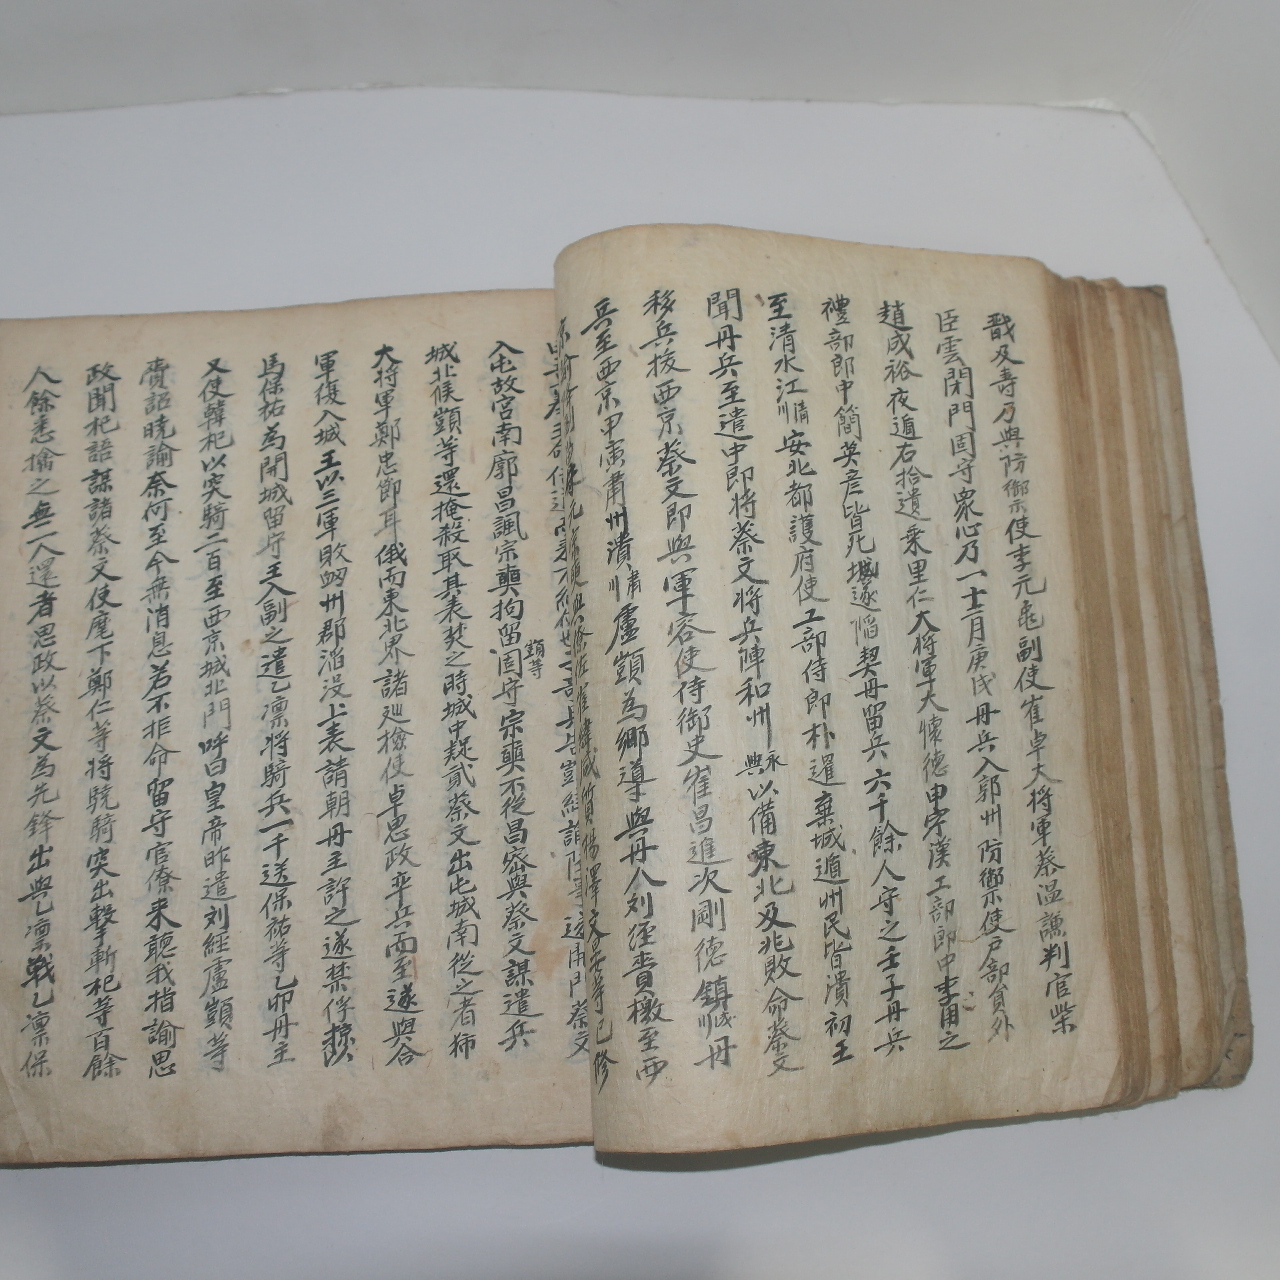 戩及壽乃與防禦使李元龜副使崔卓大將軍蔡溫謙判官柴
臣雲閉門固守衆心乃一十二月庚戌丹兵入郭州防禦使戶部員外
趙成裕夜遁右拾遺乘里仁大將軍大懷德申寧漢工部郎中李用之
禮部郎中簡英彦皆死城遂陷契丹留兵六千餘人守之壬子丹兵
至清水江清川安北都護府使工部侍郎朴暹棄城遁州民皆潰初王
聞丹兵至遣中郎將蔡文將兵陣和州永興以備東北及兆敗命蔡文
移兵援西京蔡文即與軍容使侍御史崔昌進次剛德鎮成川丹
兵至西京甲寅肅州潰肅川盧顗爲鄉導與丹人刘經賫檄至西
入屯故宮南廓昌諷宗奭拘留顗等固守宗奭不從昌密與蔡文謀遣兵
城北候顗等還掩殺取其表焚之時城中疑貳蔡文出屯城南從之者猶
大將軍鄭忠節耳俄而東北界諸廵撿使卓思政率兵而至遂與合
軍復入城王以三軍敗衂州郡滔没上表請朝丹主許之遂禁俘掠以
馬保祐爲開城留守王入副之遣乙凜將騎兵一千送保祐等乙卯丹主
又使韓杞以突騎二百至西京城北門呼曰皇帝昨遣刘經盧顗等
賫詔曉諭奈何至今無消息若不拒命留守官僚来聽我指諭思
政聞杞語謀諸蔡文使麾下鄭仁等將驍騎突出擊斬杞等百餘
人餘悉擒之無一人還者思政以蔡文爲先鋒出與乙凜戰乙凜保